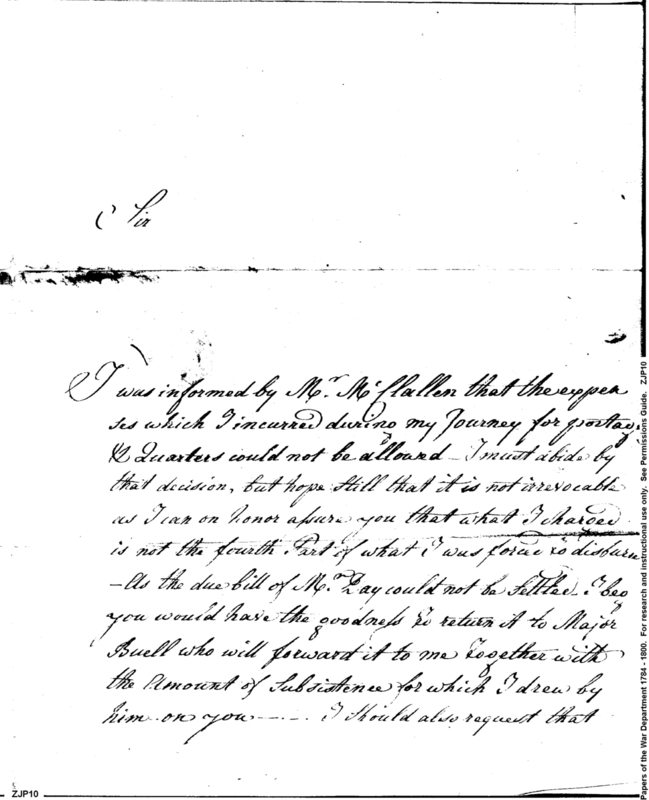 Sir
I was informed by Mr. McClallen that the expen
ses which I incurred during my Journey for portage
& Quarters could not be allowed — I must abide by
that decision, but hope still that it is not irrevocable
as I can on honor assure you that what I charged
is not the fourth Part of what I was forced to disburse
— As the due bill of Mr. Day could not be Settled. I beg
you would have the goodness to return it to Major
Buell who will forward it to me together with
the Amount of Subsistence for which I drew by
him on you — . — . I should also request that
ZJP10
Papers of the War Department 1784 - 1800. For research and instructional use only. See Permissions Guide. ZJP10